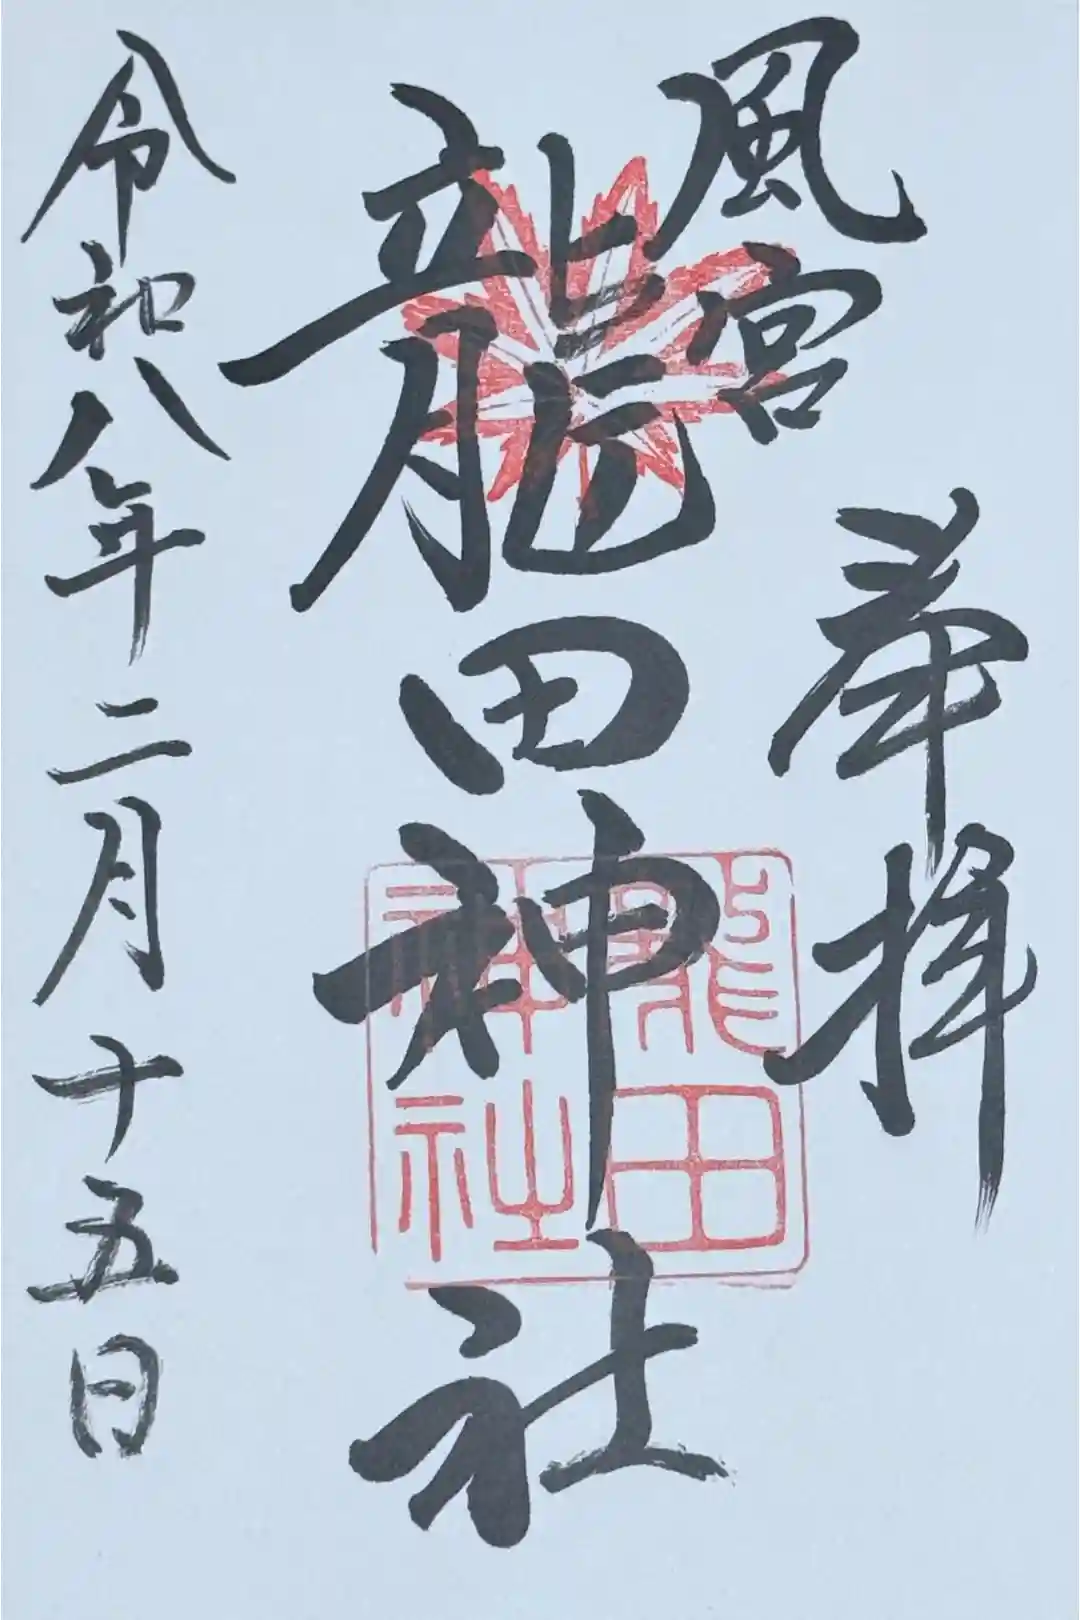 風宮
奉拝
龍田神社
龍田
神社
令和八年二月十五日